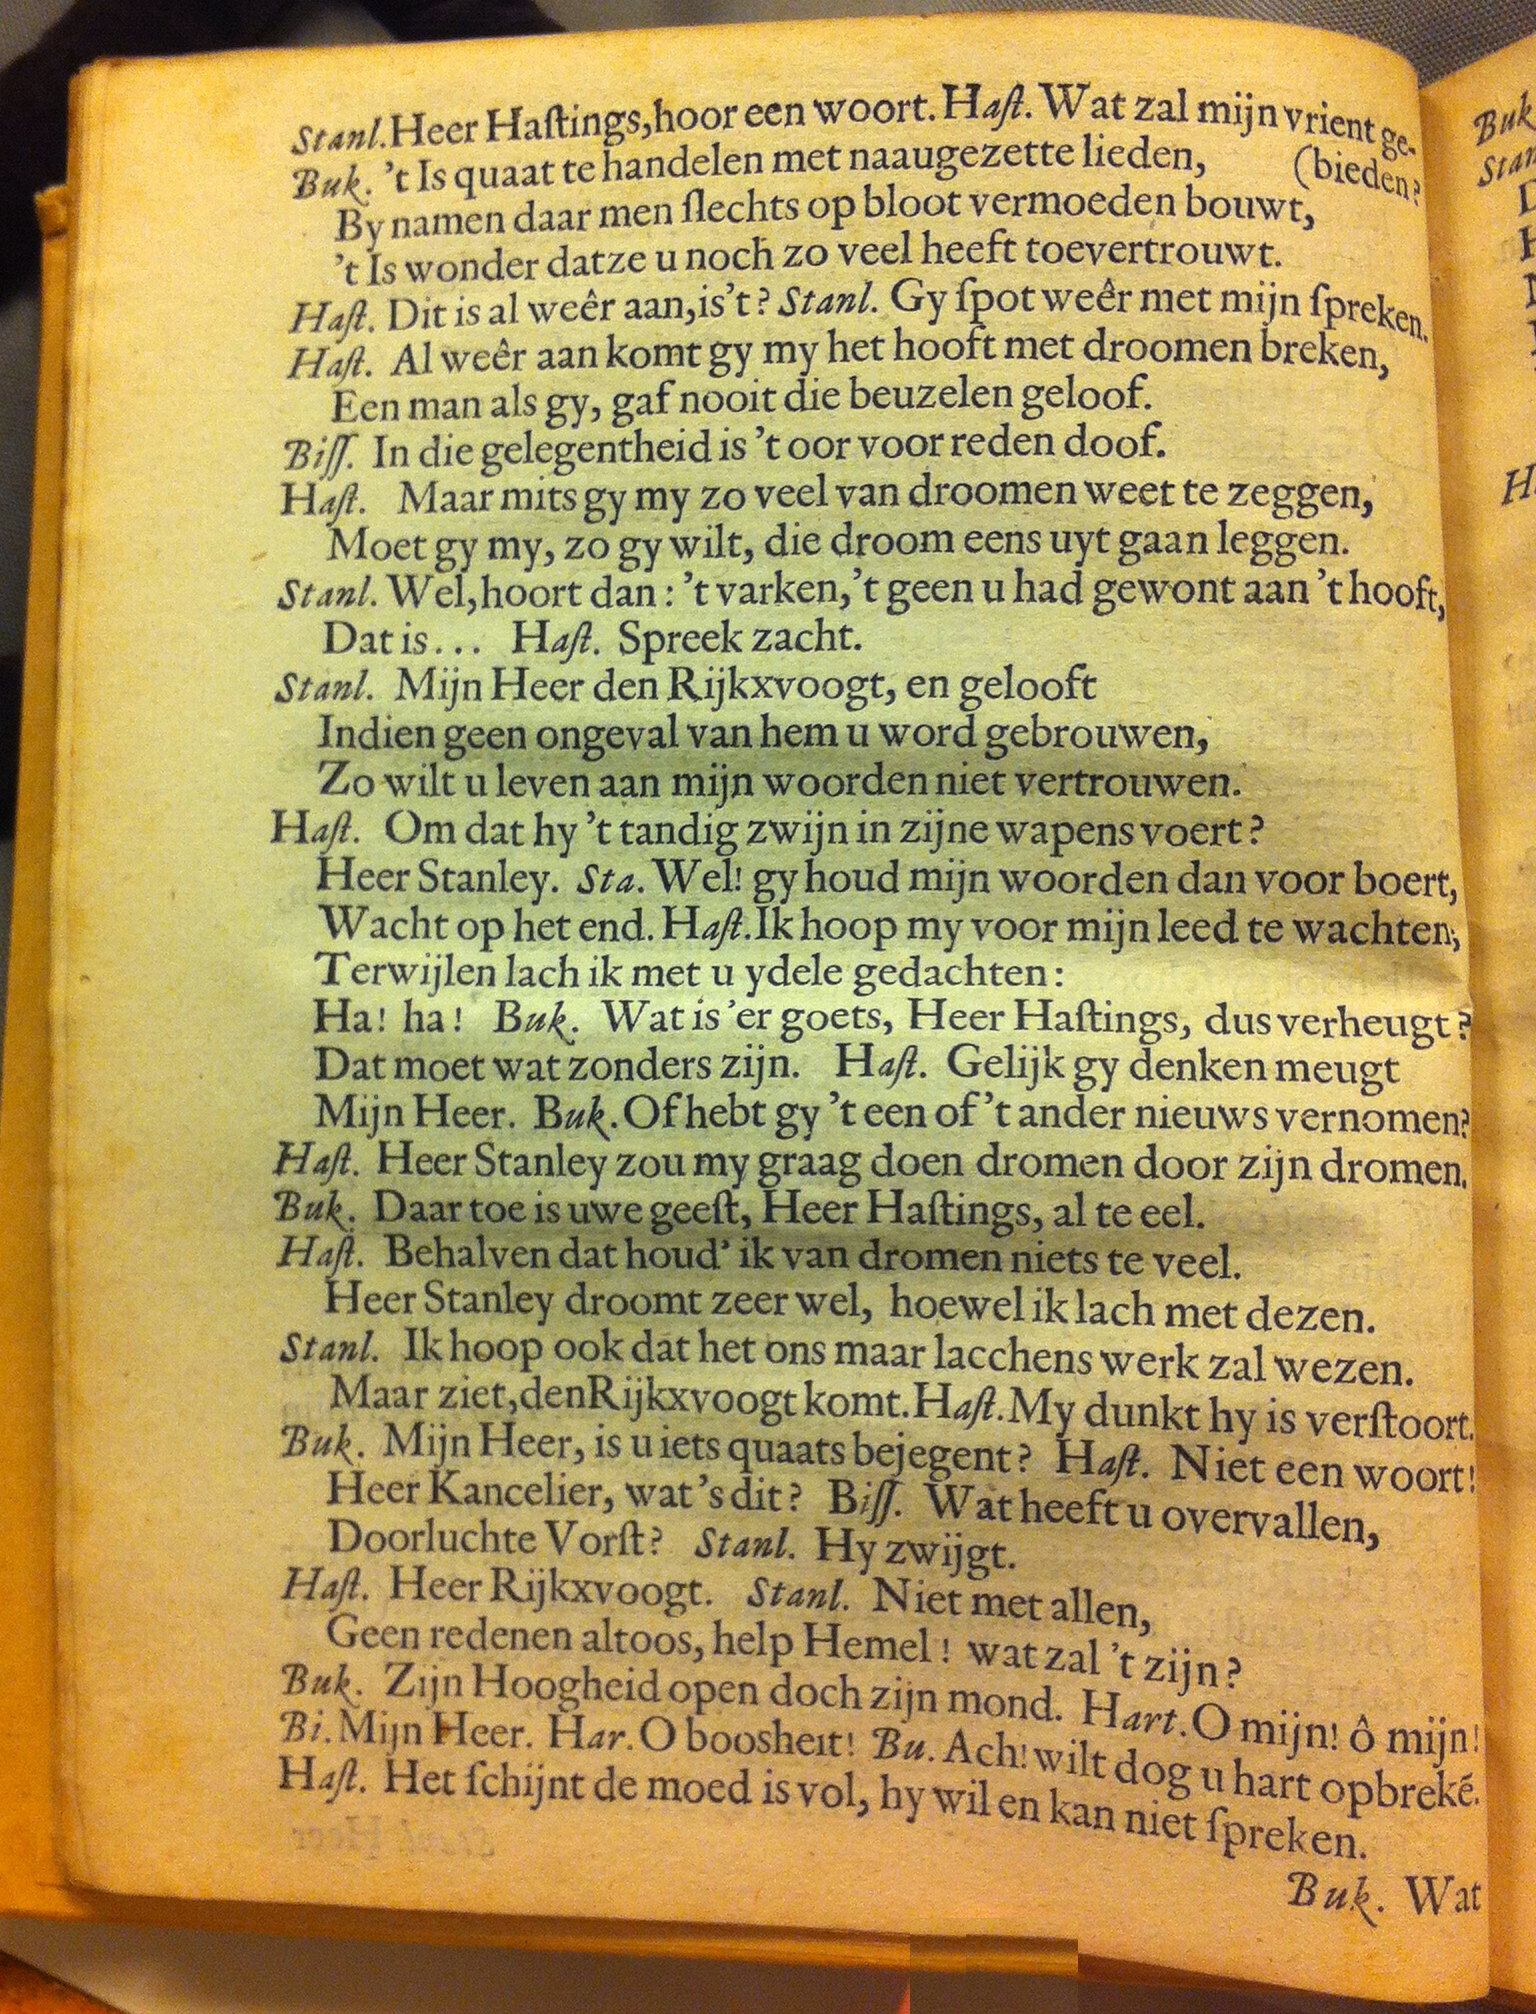 Stanl. Heer Haſtings, hoor een woort. Haſt. Wat zal mijn vrient ge-
Buk. 't Is quaat te handelen met naaugezette lieden, (bieden?
By namen daar men ſlechts op bloot vermoeden bouwt,
't Is wonder datze u noch zo veel heeft toevertrouwt.
Haſt. Dit is al weêr aan, is't? Stanl. Gy ſpot weêr met mijn ſpreken.
Haſt. Al weêr aan komt gy my het hooft met droomen breken,
Een man als gy, gaf nooit die beuzelen geloof.
Biſſ. In die gelegentheid is 't oor voor reden doof.
Haſt. Maar mits gy my zo veel van droomen weet te zeggen,
Moet gy my, zo gy wilt, die droom eens uyt gaan leggen.
Stanl. Wel, hoort dan: 't varken, 't geen u had gewont aan 't hooft,
Dat is... Haſt. Spreek zacht.
Stanl. Mijn Heer den Rijkxvoogt, en gelooft
Indien geen ongeval van hem u word gebrouwen,
Zo wilt u leven aan mijn woorden niet vertrouwen.
Haſt. Om dat hy 't tandig zwijn in zijne wapens voert?
Heer Stanley. Sta. Wel! gy houd mijn woorden dan voor boert,
Wacht op het end. Haſt. Ik hoop my voor mijn leed te wachten,
Terwijlen lach ik met u ydele gedachten:
Ha! ha! Buk. Wat is 'er goets, Heer Haſtings, dus verheugt?
Dat moet wat zonders zijn. Haſt. Gelijk gy denken meugt
Mijn Heer. Buk. Of hebt gy 't een of 't ander nieuws vernomen?
Haſt. Heer Stanley zou my graag doen dromen door zijn dromen.
Buk. Daar toe is uwe geeſt, Heer Haſtings, al te eel.
Haſt. Behalven dat houd' ik van dromen niets te veel.
Heer Stanley droomt zeer wel, hoewel ik lach met dezen.
Stanl. Ik hoop ook dat het ons maar lacchens werk zal wezen.
Maar ziet, den Rijkxvoogt komt. Haſt. My dunkt hy is verſtoort.
Buk. Mijn Heer, is u iets quaats bejegent? Haſt. Niet een woort!
Heer Kancelier, wat 's dit? Biſſ. Wat heeft u overvallen,
Doorluchte Vorſt? Stanl. Hy zwijgt.
Haſt. Heer Rijkxvoogt. Stanl. Niet met allen,
Geen redenen altoos, help Hemel! wat zal 't zijn?
Buk. Zijn Hoogheid open doch zijn mond. Hart. O mijn! ô mijn!
Bi. Mijn Heer. Har. O boosheit! Bu. Ach! wilt dog u hart opbrekē.
Haſt. Het ſchijnt de moed is vol, hy wil en kan niet ſpreken.
Buk. Wat